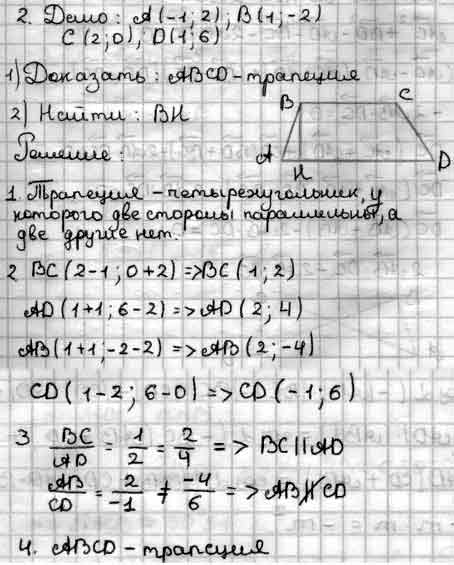 2. Дано: A(-1; 2); B(1; -2)
C(2; 0), D(1; 6)
1) Доказать: ABCD - трапеция
2) Найти: BH
B C
A H D
Решение:
1. Трапеция - четырехугольник, у
которого две стороны параллельны, а
две другие нет.
2 BC(2-1; 0+2) => BC(1; 2)
AD(1+1; 6-2) => AD(2; 4)
AB(1+1; -2-2) => AB(2; -4)
CD(1-2; 6-0) => CD(-1; 6)
3 BC/AD = 1/2 = 2/4 => BC || AD
AB/CD = 2/-1 ≠ -4/6 => AB ∦ CD
4. ABCD - трапеция